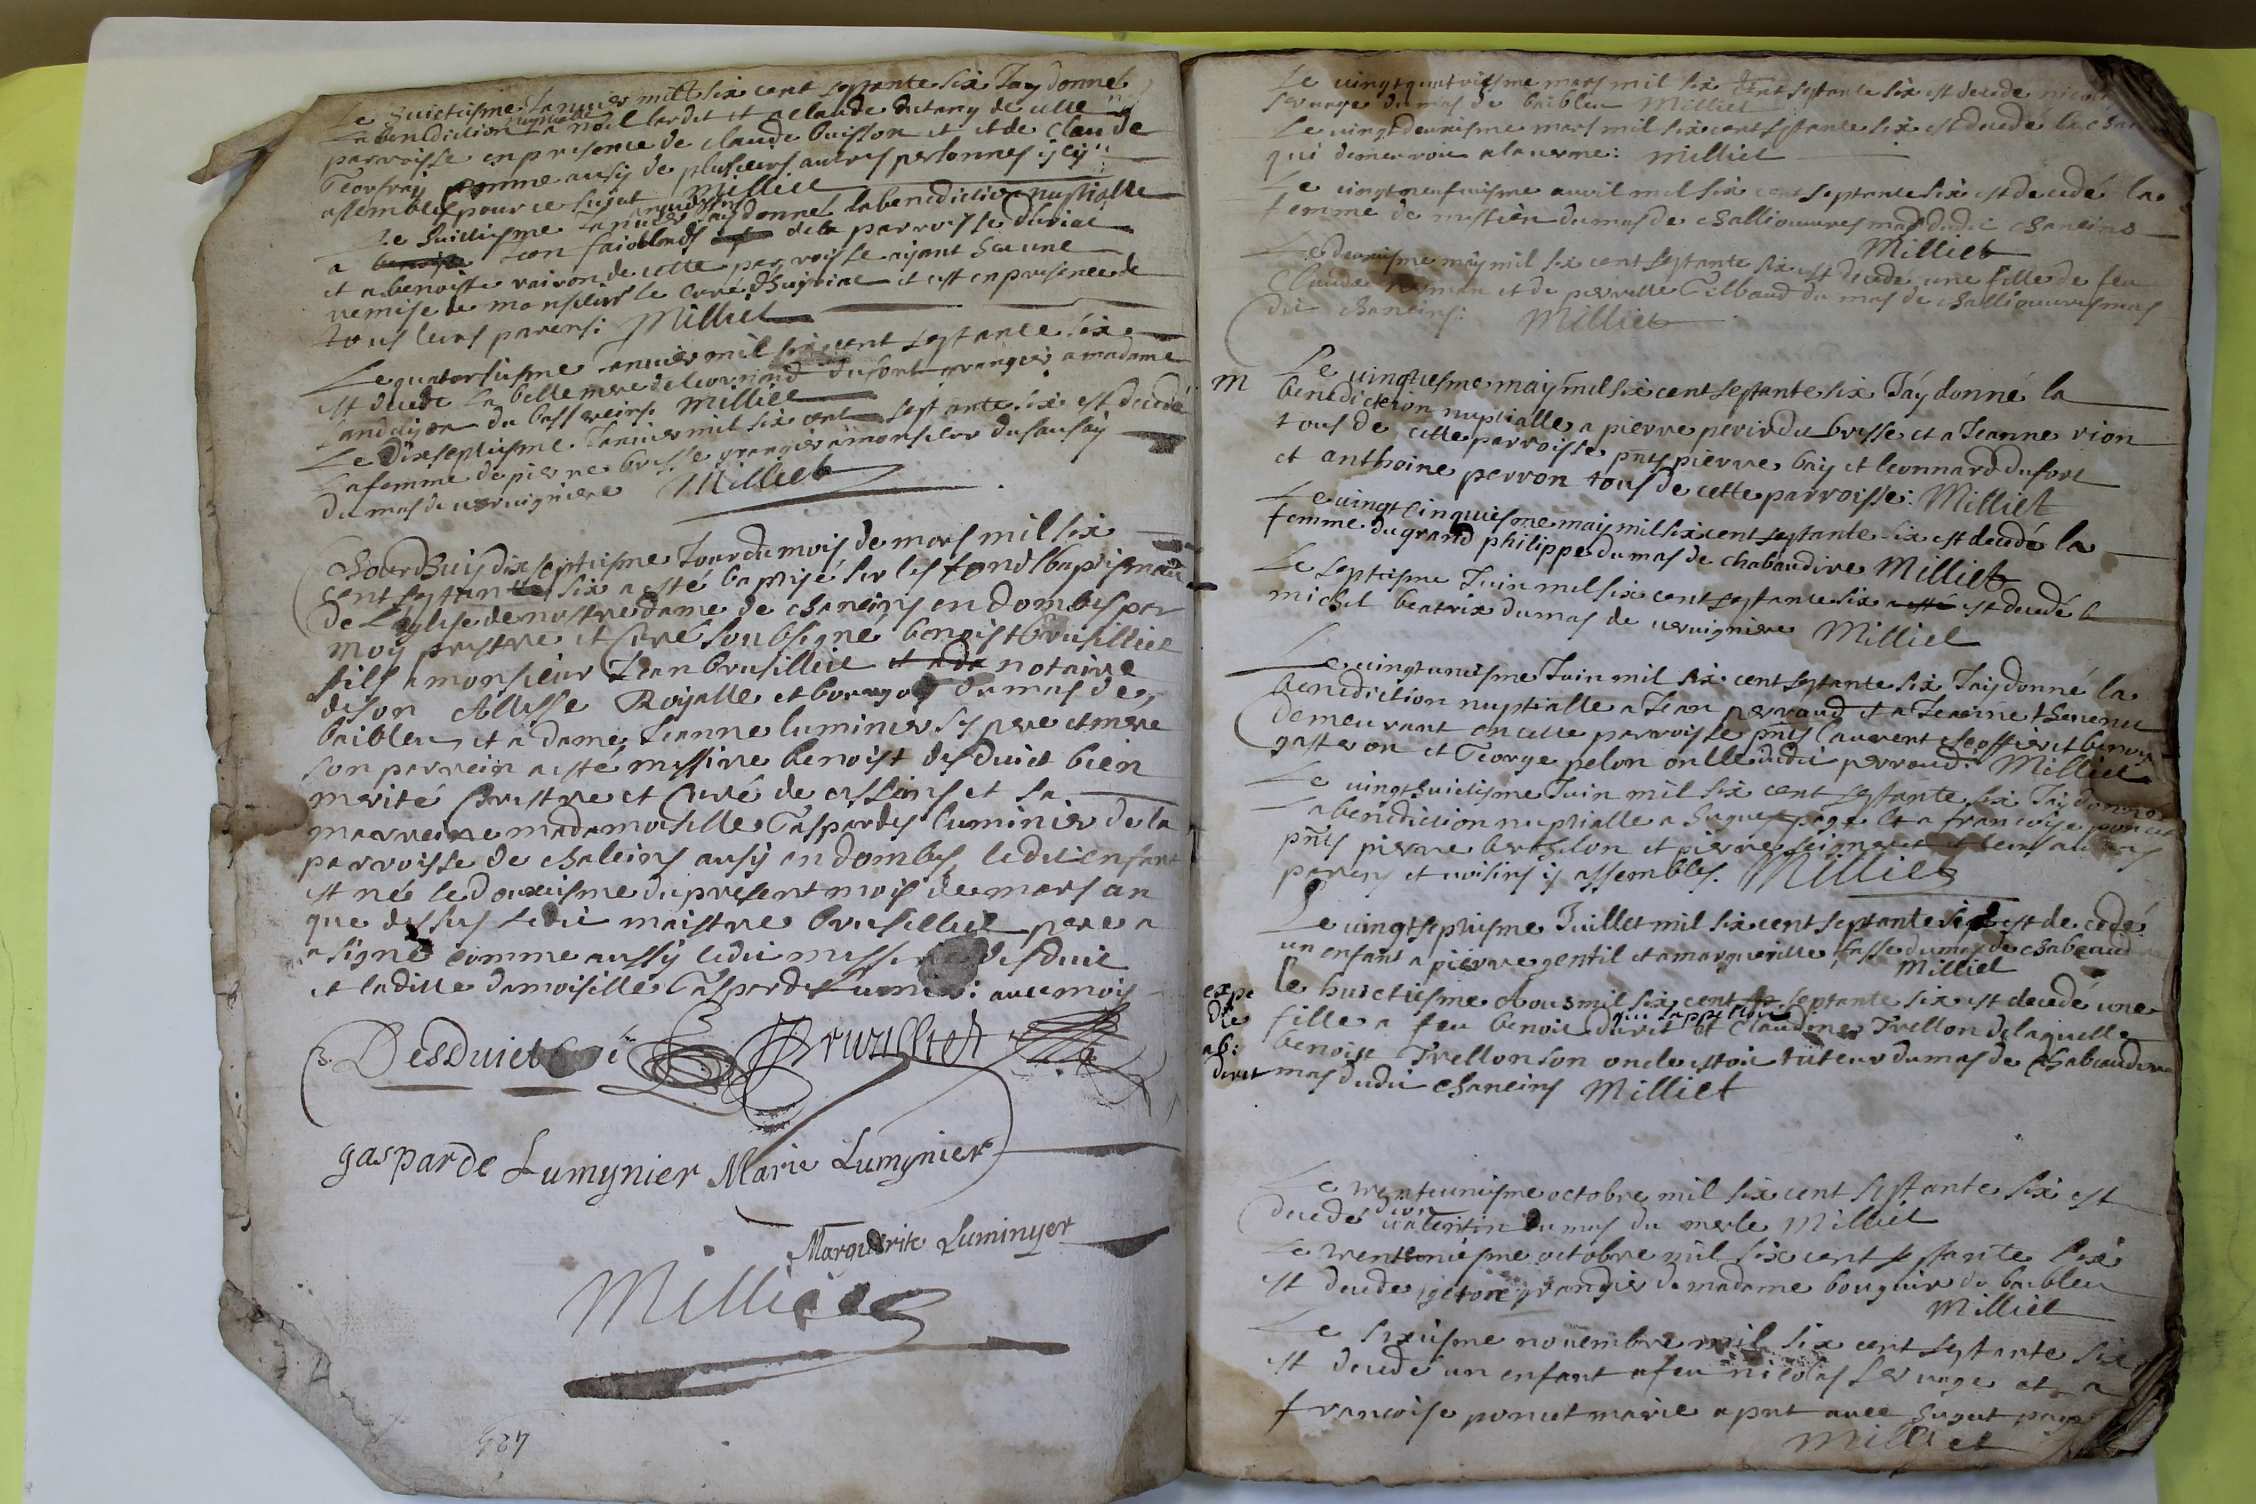 Le huictiesme Januier mill six cent septante six Jay donne
La benediction nuptialle a noel lardet et a claude dutang de cette
parroisse en presence de claude buisson et et de Claude
Geoufray comme ausy de plusieurs autres personnes icy
assemblez pour ce sujet Milliet
Le huittiesme Januier jay donnel la benediction nuptialle
a Jean faioblands de la parroisse duriat
et a benoiste vairon de cette parroisse ayant heu une
remise de monsieur le curé et est en presence de
tous leurs parens: Milliet
Le quatorsiesme Januier mil six cent septante six
est decede la belle mere de leonnard dufort grangier a madame
du bassereins Milliet
Le Dixseptiesme Januier mil six cent septante six est decedé
La femme de pierre brusse grangier a monsieur dusausay
Du mas de ueruigniere Milliet
Ce Jourdhuis dix septiesme Jour du mois de mars mil six
cent septante six a esté baptisé sur les fonds baptismaux
de Leglise de nostre dame de chaneins en dombes par
moy prestre et Curé soubsigné benoist brusilliet
fils a monsieur Jean brusilliet et a da notaire
de son Altesse Royalle et bourgois du mas de
baibleu et a dame Jeanne luminier ses pere et mere
son parrein a esté messire benoist desduict bien
merité prestre et Curé de cessins et sa
marreine madamoiselle Gasparde luminier de la
parroisse de chaleins ausy en dombes ledit enfant
est né le douxiesme du present mois de mars an
que dessus ledit maistre brusilliet pere a
signé comme aussy ledit messire desduit
et laditte damoiselle Gasparde Lumini: auec mois
Desduict Bruzilliet
gasparde Lumynier Marie Lumynier
Marguerite Luminyer
Milliet
Le uingtquatriesme mars mil six cent septante six est decede nicolas
seruage du mas de baibleu Milliet
Le uingtdeuxiesme mars mil six cent septante six est decede
qui demeuroit a lauerne: Milliet
Le uingtneufuiesme auril mil six cent septante six est decedé la
femme de mestier du mas de challiouures mas dudit chaneins
Milliet
Le deuxiesme may mil six cent septante six est decedé une fille de feu
Claude et de pierrette Gilbaud du mas de challiouures mas
dit chaneins: Milliet
m Le uingtiesme may mil six cent septante six Jay donné la
benediction nuptialle a pierre perir du brusse et a Jeanne rion
tous de cette parroisse pnts pierre bay et leonnard dufort
et anthoine perron tous de cette parroisse: Milliet
Le uingt cinquiesme may mil six cent septante six est decedé la
femme du grand philippe du mas de chabaudire Milliet
Le septiesme Juin mil six cent septante six est decedé
michel beatrix du mas de ueruigniere Milliet
Le uingtuniesme Juin mil six cent septante six Jay donné la
benediction nuptialle a Jean perraud et a Jeanne theuenet
demeurant en cette parroisse pnts laurent et benoist
gasteron et George pelon onlle dudit perraud: Milliet
Le uingthuictiesme Juin mil six cent septante six Jay donne
La benediction nuptialle a hugues page et a francoise poncet
pnts pierre berthelon et pierre et leurs autres
parens et uoisins y assembles. Milliet
Le uingtseptiesme Juillet mil six cent septante six est decedé
un enfant a pierre gentil et a marguerite fasse du mas de chabeaud
Milliet
expe
die
ab:
diret
Le huictiesme Aous mil six cent septante six est decedé une
fille a feu benoit diret et Claudine Trellon de laquelle
benoist Trellon son oncle estoit tuteur du mas de chabeaudire
mas dudit chaneins Milliet
Le trenteuniesme octobre mil six cent septante six est
decedé ualentin du mas du merle Milliet
Le trenteuniesme octobre mil six cent septante six
est decede grangier de madame bouguin de baibleu
Milliet
Le sixiesme nouembre mil six cent septante six
est decede un enfant a feu nicolas seruage et a
francoise poncet marie a pnt auec hugues page
Milliet